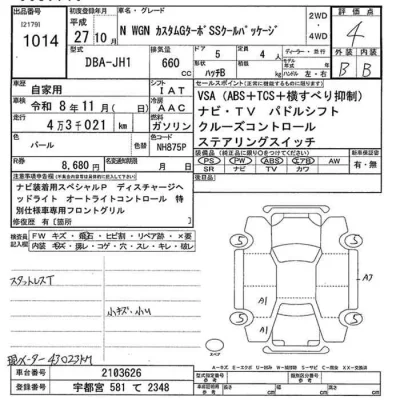 [2179]
1014
初度登録年月
平成
27年10月
車名・グレード
N WGN カスタムGターボSSクールパッケージ
2WD・4WD
型式
DBA-JH1
排気量
660
CC
ドア
5
形状
ハッチB
定員
4
ディーラー・並行
ハンドル 左・右
評価点
4
外装
内装
B
B
車歴
自家用
車検
令和 8年 11月(  日)
走行
4万3千021km
色
パール
シフト
IAT
冷房
AAC
燃料
ガソリン
カラーNo.
NH875P
8,680円
名変期限
月  日
セールスポイント
VSA(ABS+TCS+横すべり抑制)
ナビ・TV パドルシフト
クルーズコントロール
ステアリングスイッチ
装備品
PS PW ABS エアB AW
SR ナビ TV カワ
保証書
有・無
注意事項申告欄
ナビ装着用スペシャルP ディスチャージヘ
ッドライト オートライトコントロール 特
別仕様車専用フロントグリル
修復歴 有[箇所]
後日品
検査員記入欄
FW キズ・飛石・ヒビ割・リペア跡・×要
内装 キズ・汚レ・コゲ・穴・スレ・キレ・破レ
スタッドレスT
小キズ・小凹
現メーター 43023KM
5
5
5
5
A1
A1
スペア
車台番号
2103626
登録番号
宇都宮 581 て 2348
型式指定番号
類別区分番号
長さ
cm
幅
cm
高さ
cm